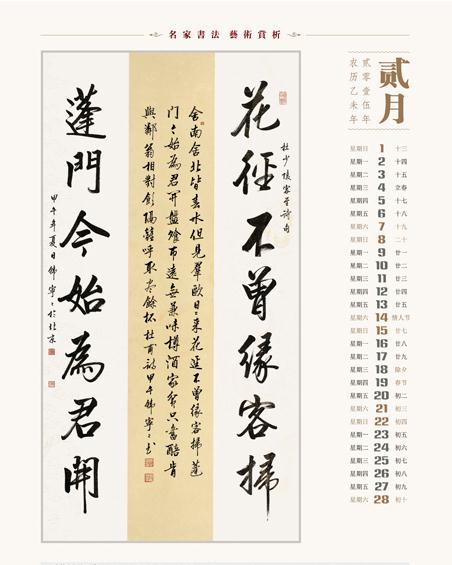 名家書法 藝術賞析
貳月
貳零壹伍年
农历乙未年
花徑不曾緣客掃
杜少陵客至诗句
舍南舍北皆春水但見羣鷗日日来花逕不曾缘客掃蓬
門今始為君開盤飧市遠無兼味樽酒家貧只舊醅肯
與鄰翁相對飲隔籬呼取盡餘杯杜甫詩甲午韩寧寧书
蓬門今始為君開
甲午年夏日韩寧寧於北京
星期日 1 十三
星期一 2 十四
星期二 3 十五
星期三 4 立春
星期四 5 十七
星期五 6 十八
星期六 7 十九
星期日 8 二十
星期一 9 廿一
星期二 10 廿二
星期三 11 廿三
星期四 12 廿四
星期五 13 廿五
星期六 14 情人节
星期日 15 廿七
星期一 16 廿八
星期二 17 廿九
星期三 18 除夕
星期四 19 春节
星期五 20 初二
星期六 21 初三
星期日 22 初四
星期一 23 初五
星期二 24 初六
星期三 25 初七
星期四 26 初八
星期五 27 初九
星期六 28 初十